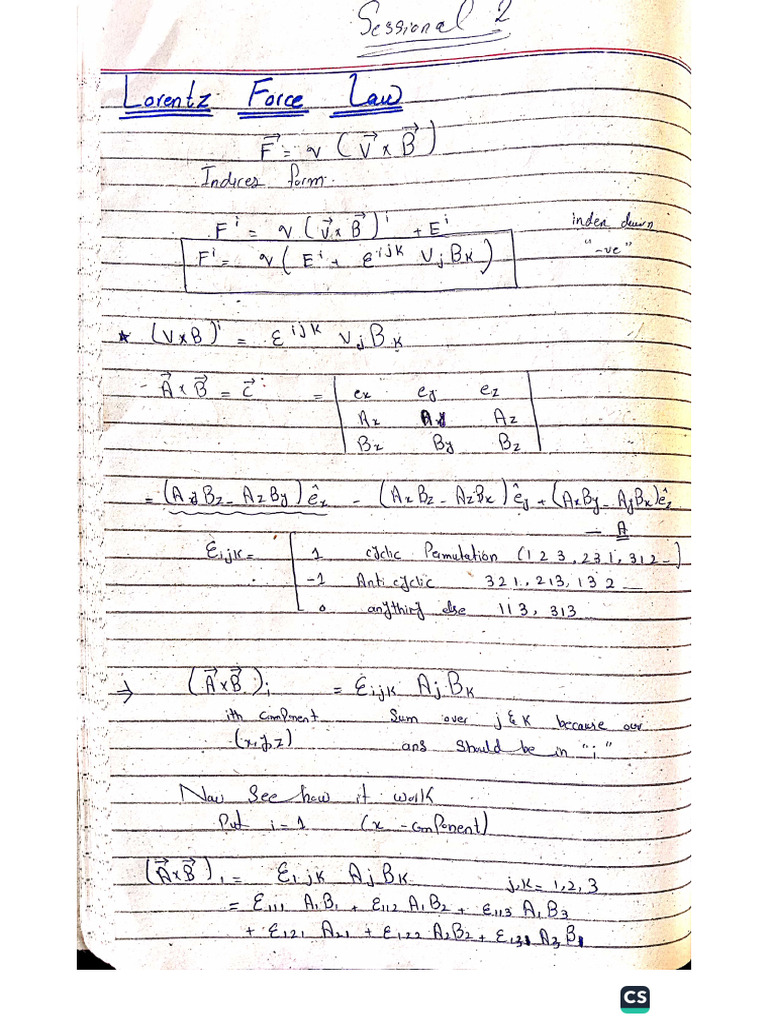 Sessional 2
Lorentz Force Law
F⃗ = q (V⃗ × B⃗)
Indices form.
F^i = q (v⃗ × B⃗)^i + E^i
index down
F^i = q ( E^i + ε^{ijk} V_j B_k )
"-ve"
* (V×B)^i = ε^{ijk} V_j B_k
- A⃗ × B⃗ = C⃗ = | e_x e_y e_z
A_x A_y A_z
B_x B_y B_z |
= (A_y B_z - A_z B_y) ê_x - (A_x B_z - A_z B_x) ê_y + (A_x B_y - A_y B_x) ê_z
— A
ε_{ijk} = [ 1 cyclic Permutation (1 2 3, 2 3 1, 3 1 2 -)
-1 Anti cyclic 3 2 1, 2 1 3, 1 3 2 —
0 anything else 1 1 3, 3 1 3
→ (A⃗×B⃗)_i = ε_{ijk} A_j B_k
ith component Sum over j & k because our
(x, y, z) ans should be in "i"
Now see how it work
Put i = 1 (x - component)
(A⃗×B⃗)_1 = ε_{1jk} A_j B_k j,k = 1, 2, 3
= ε_{111} A_1 B_1 + ε_{112} A_1 B_2 + ε_{113} A_1 B_3
+ ε_{121} A_{21} + ε_{122} A_2 B_2 + ε_{131} A_3 B_1
CS